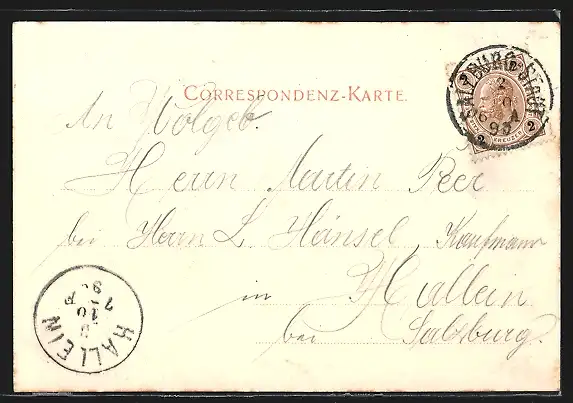 CORRESPONDENZ-KARTE.
An Wolgeb.
Herrn Martin Peer
bei Herrn L. Hänsel, Kaufmann
in Hallein
bei Salzburg.
SALZBURG STADT
2
KREUZER
2 2
HALLEIN